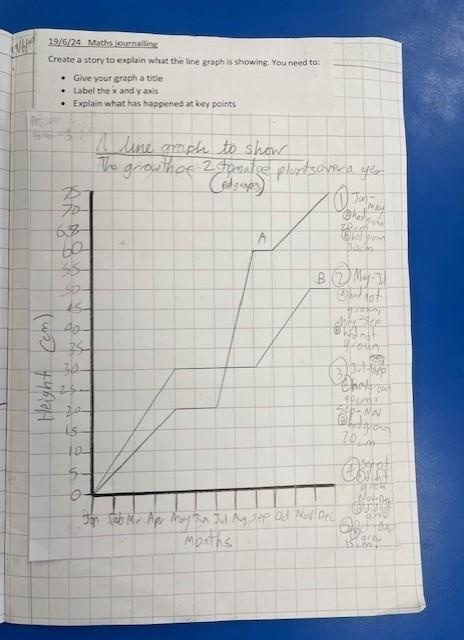 19/6/24 Maths journalling
Create a story to explain what the line graph is showing. You need to:
• Give your graph a title
• Label the x and y axis
• Explain what has happened at key points
A line graph to show
The growth of 2 tomatoe plants over a yer
75
70
65
60
55
50
45
40
35
30
25
20
15
10
5
0
Height (cm)
A
B
Jan Feb Mr Apr May Jun Jul Ag Sep Od Nov Dec
Months
① Jan-
May
Ⓐ had grown
20 cm
Ⓑ had grown
30cm
② May-Jul
Ⓐ had not
grown
May-Sep
Ⓑ had not
grown
③ Jul-
Ⓐ had grown
40cm
Sep-Nov
Ⓑ had grown
20 cm
④
grow
Nov-Dec
grow
⑤
grow
15cm